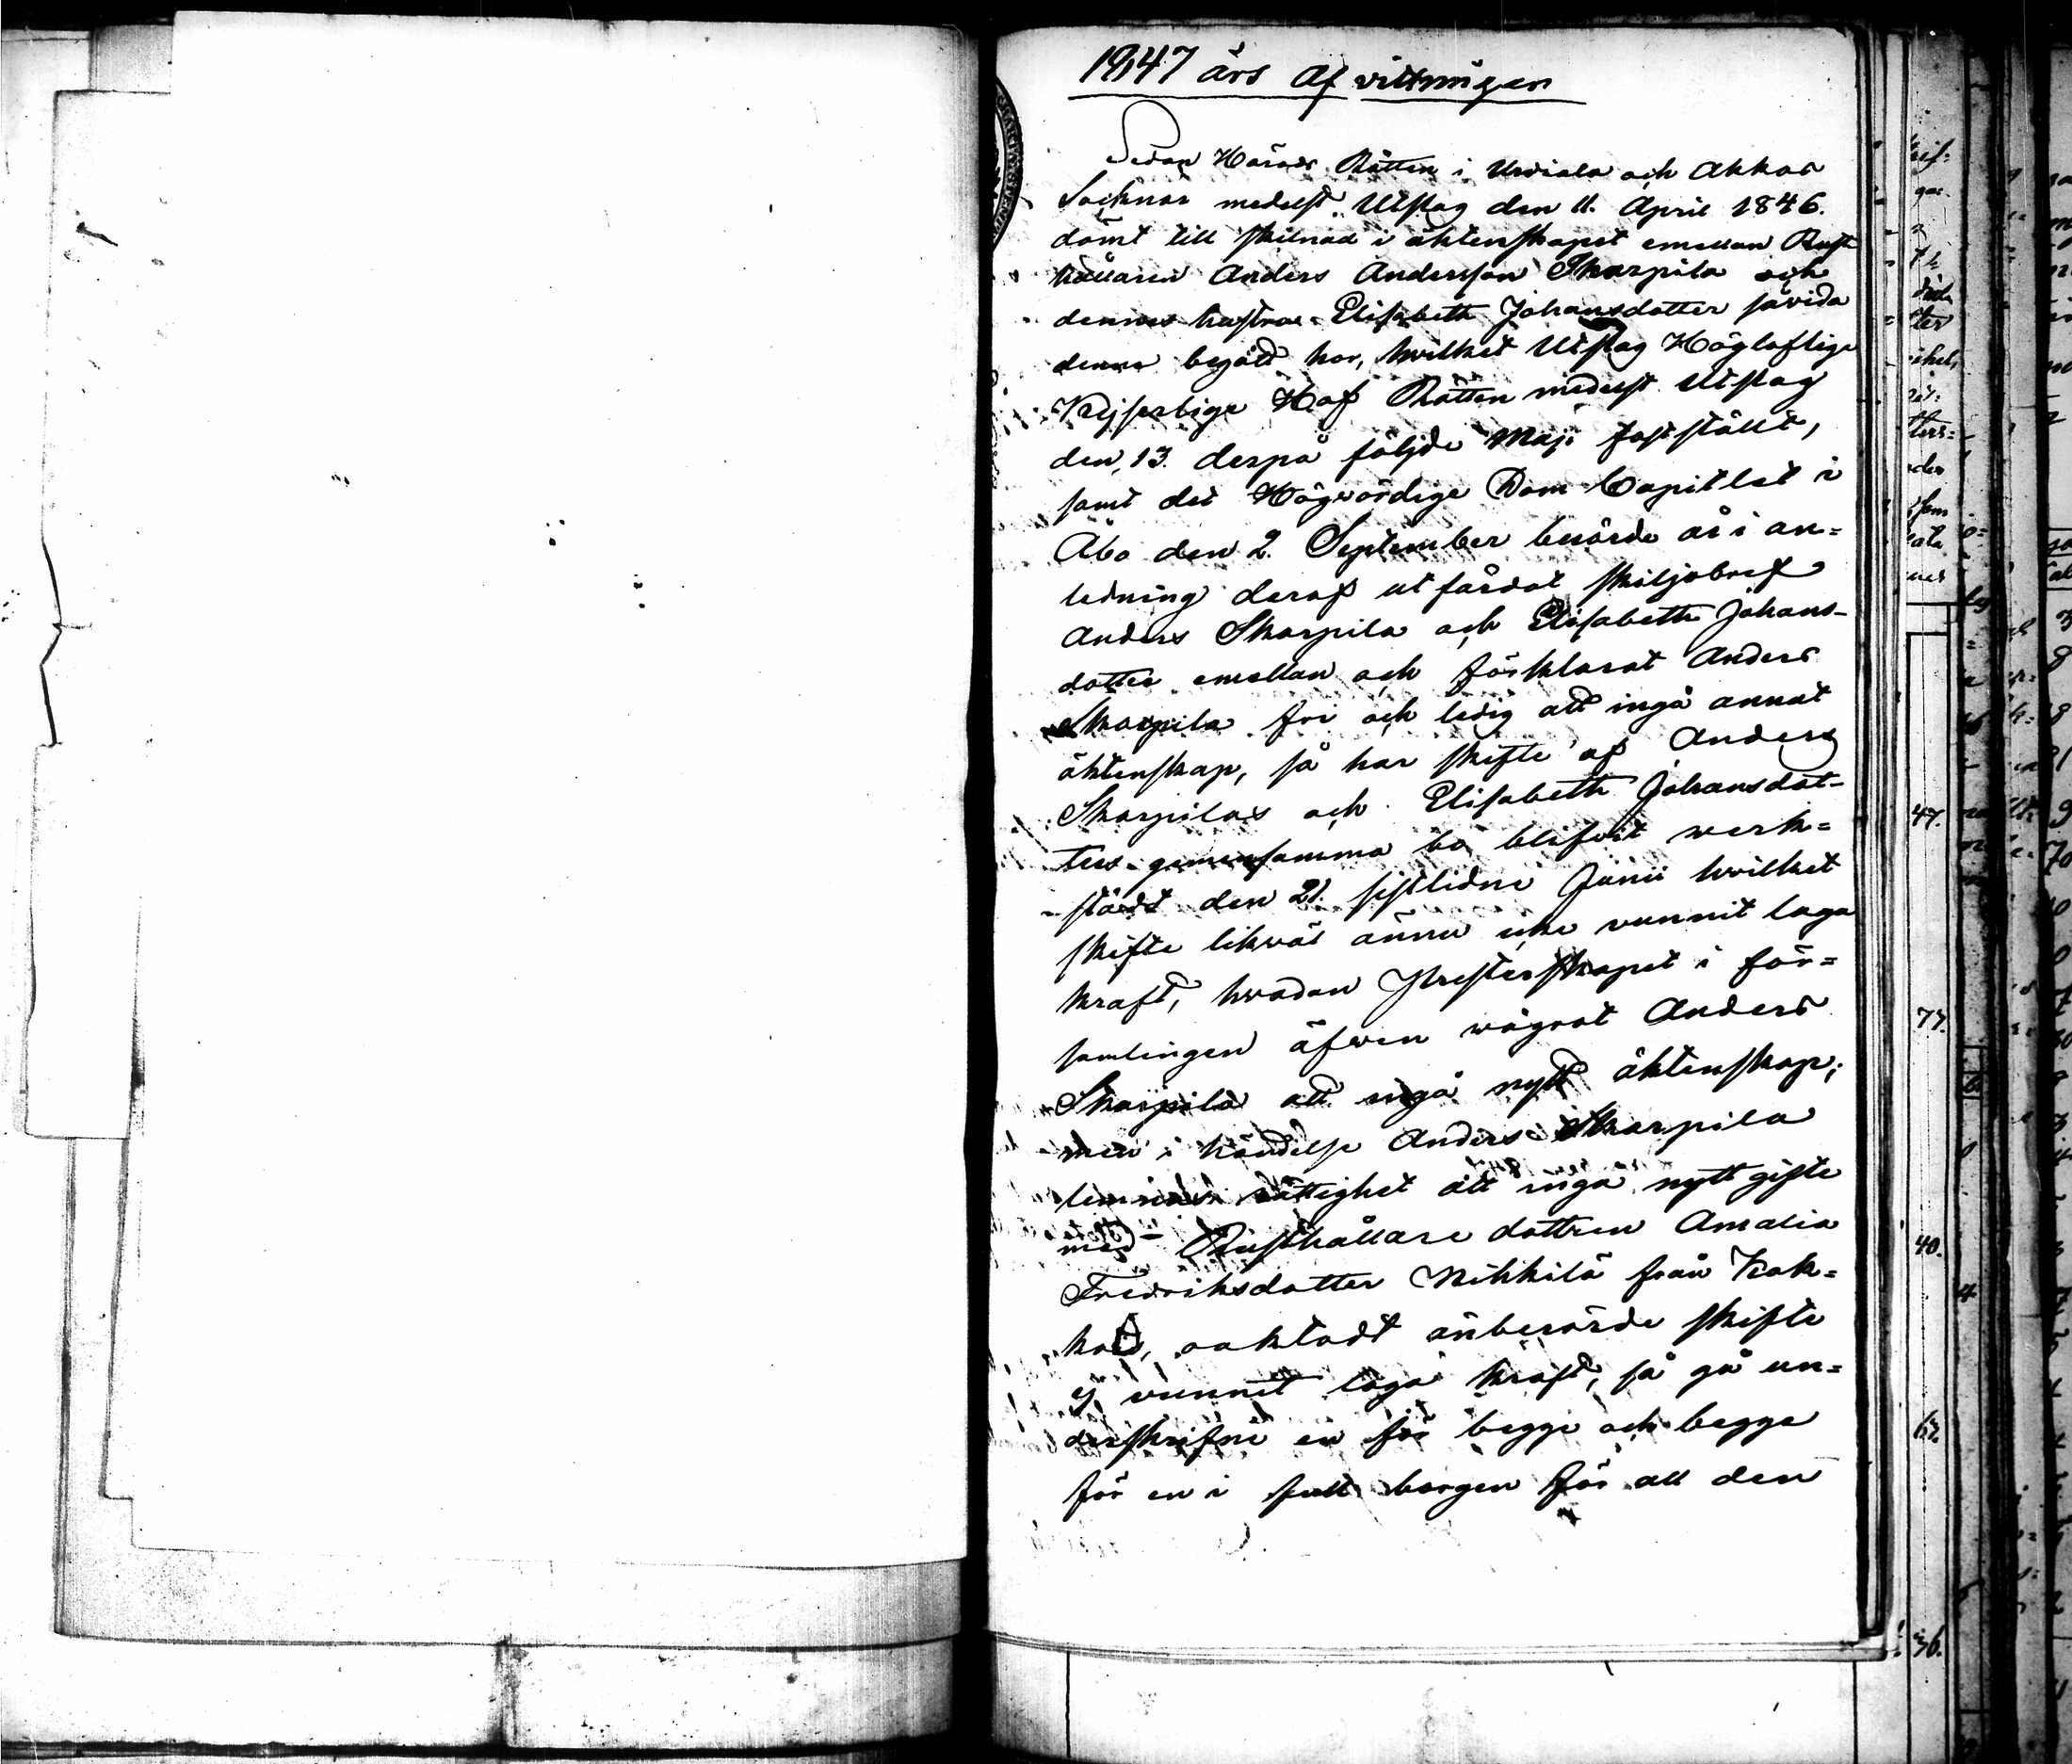 1847 års af vittringen
Sedan Härads Rätten i Urdiala och Akkas
Socknar medelst Utslag den 11. April 1846.
dömt till skilnad i äktenskapet emellan Rust-
hållaren Anders Andersson Skarpila och
dennes hustru Elisabeth Johansdotter såvida
denna begått hor, hvilket Utslag Högloflige
Kejserlige Hof Rätten medelst Utslag
den 13. derpå följde Maji fastställt,
samt det Högvördige Dom Capitlet i
Åbo den 2. September berörde år i an=
ledning deraf utfärdat skiljobref
Anders Skarpila och Elisabeth Johans-
dotter emellan och förklarat Anders
Skarpila fri och ledig att ingå annat
äktenskap, så har skifte af Anders
Skarpilas och Elisabeth Johansdot-
ters gemensamma bo blifvit verk=
städt den 21. sistlidne Junii hvilket
skifte likväl ännu icke vunnit laga
kraft, hvadan Presterskapet i för=
samlingen äfven vägrat Anders
Skarpila att ingå nytt äktenskap;
men i händelse Anders Skarpila
lemnas rättighet att ingå nytt gifte
med Rusthållare dottren Amalia
Fredriksdotter Nikkilä från Kak=
, oaktadt änberörde skifte
ej vunnit laga kraft, så gå un=
derskrifne en för begge och begge
för en i full borgen för all den
47.
77.
40.
67.
36.